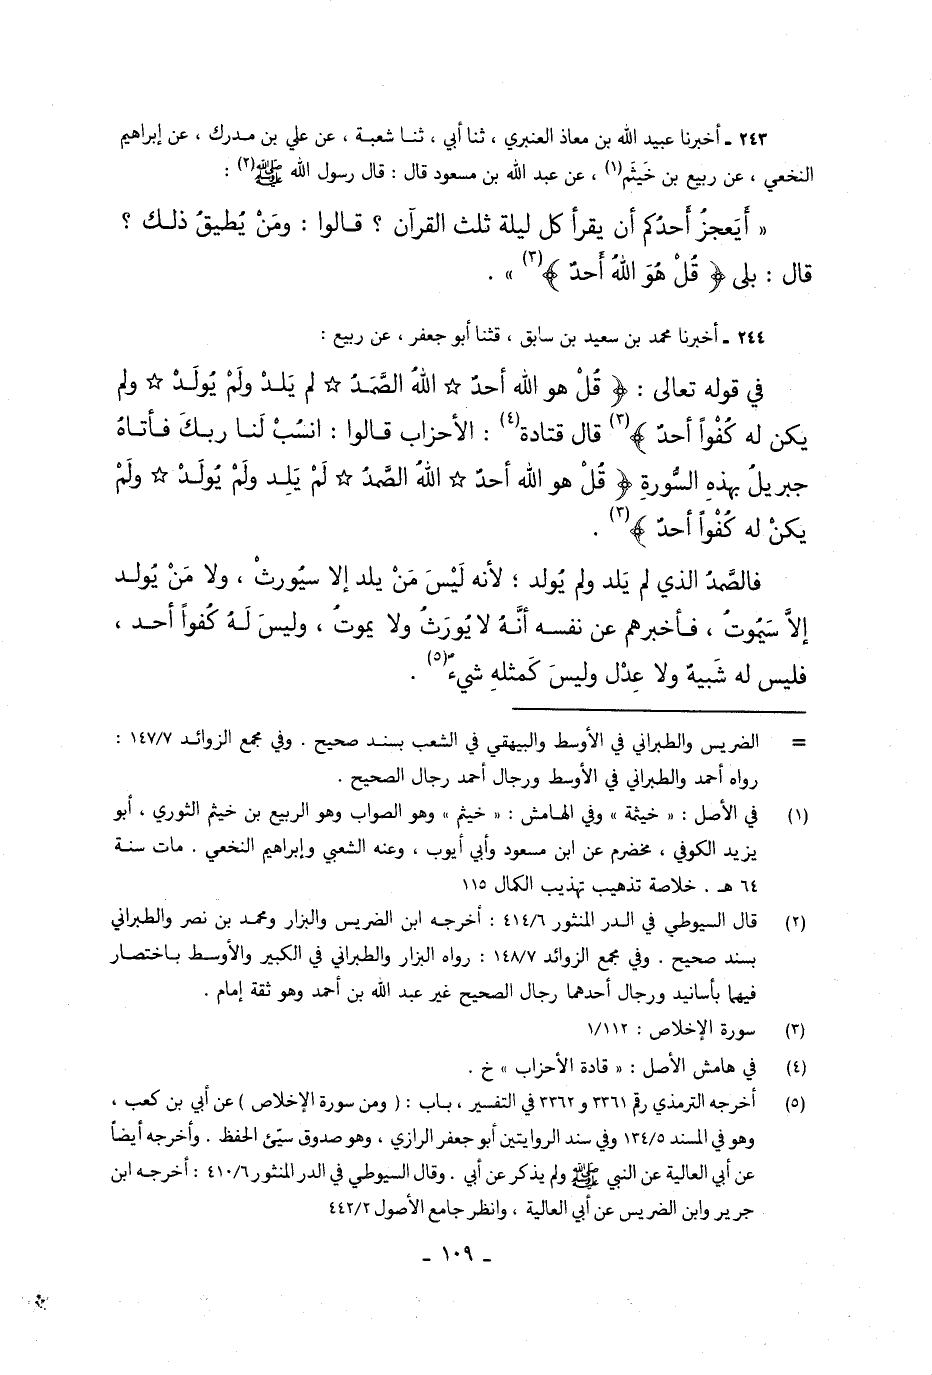 ٢٤٣ ـ أخبرنا عبيد الله بن معاذ العنبري ، ثنا أبي ، ثنا شعبة ، عن علي بن مدرك ، عن إبراهيم
النخعي ، عن ربيع بن خَيثَم(١) ، عن عبد الله بن مسعود قال : قال رسول الله ﷺ(٢) :
« أَيَعجزُ أَحدُكم أن يقرأ كل ليلة ثلث القرآن ؟ قالوا : ومَنْ يُطيقُ ذلك ؟
قال : بلى ﴿ قُلْ هُوَ اللهُ أَحدٌ ﴾(٣) » .
٢٤٤ ـ أخبرنا محمد بن سعيد بن سابق ، قثنا أبو جعفر ، عن ربيع :
في قوله تعالى : ﴿ قُلْ هو الله أحدٌ ☆ اللهُ الصَّمَدُ ☆ لم يَلدْ ولَمْ يُولَدْ ☆ ولم
يكن له كُفْواً أحدٌ ﴾(٣) قال قتادة(٤) : الأحزاب قالوا : انسُبْ لَنا ربكَ فأتاهُ
جبريلُ بهذهِ السُّورةِ ﴿ قُلْ هو الله أحدٌ ☆ اللهُ الصَّمدُ ☆ لَمْ يَلِد ولَمْ يُولَدْ ☆ ولَمْ
يكنْ له كُفْواً أحدٌ ﴾(٣) .
فالصَّمدُ الذي لم يَلد ولم يُولد ؛ لأنه لَيْسَ مَنْ يلد إلا سيُورثْ ، ولا مَنْ يُولد
إلاَّ سَيَموتُ ، فأخبرهم عن نفسه أنَّهُ لا يُورَثُ ولا يموتُ ، وليسَ لَهُ كُفواً أحد ،
فليس له شَبيهٌ ولا عِدْل وليسَ كَمثلهِ شيءٌ(٥) .
= الضريس والطبراني في الأوسط والبيهقي في الشعب بسند صحيح . وفي مجمع الزوائد ١٤٧/٧ :
رواه أحمد والطبراني في الأوسط ورجال أحمد رجال الصحيح .
(١) في الأصل : « خيثمة » وفي الهامش : « خيثم » وهو الصواب وهو الربيع بن خيثم الثوري ، أبو
يزيد الكوفي ، مخضرم عن ابن مسعود وأبي أيوب ، وعنه الشعبي وإبراهيم النخعي . مات سنة
٦٤ هـ . خلاصة تذهيب تهذيب الكمال ١١٥
(٢) قال السيوطي في الدر المنثور ٤١٤/٦ : أخرجه ابن الضريس والبزار ومحمد بن نصر والطبراني
بسند صحيح . وفي مجمع الزوائد ١٤٨/٧ : رواه البزار والطبراني في الكبير والأوسط باختصار
فيها بأسانيد ورجال أحدهما رجال الصحيح غير عبد الله بن أحمد وهو ثقة إمام .
(٣) سورة الإخلاص : ١/١١٢
(٤) في هامش الأصل : « قادة الأحزاب » خ .
(٥) أخرجه الترمذي رقم ٣٣٦١ و ٣٣٦٢ في التفسير ، باب : ( ومن سورة الإخلاص ) عن أبي بن كعب ،
وهو في المسند ١٣٤/٥ وفي سند الروايتين أبو جعفر الرازي ، وهو صدوق سيّئ الحفظ . وأخرجه أيضاً
عن أبي العالية عن النبي ﷺ ولم يذكر عن أبي . وقال السيوطي في الدر المنثور ٤١٠/٦ : أخرجه ابن
جرير وابن الضريس عن أبي العالية ، وانظر جامع الأصول ٤٤٢/٢
ـ ١٠٩ ـ